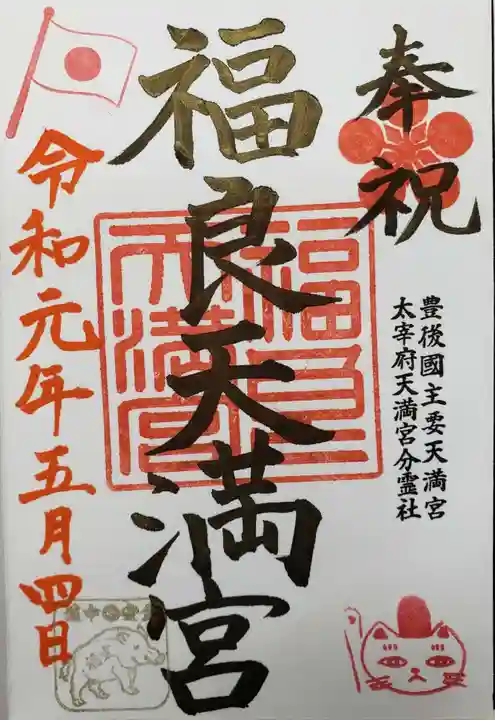 奉祝
豊後國主要天満宮
太宰府天満宮分霊社
福良天満宮
福良天満宮
令和元年五月四日